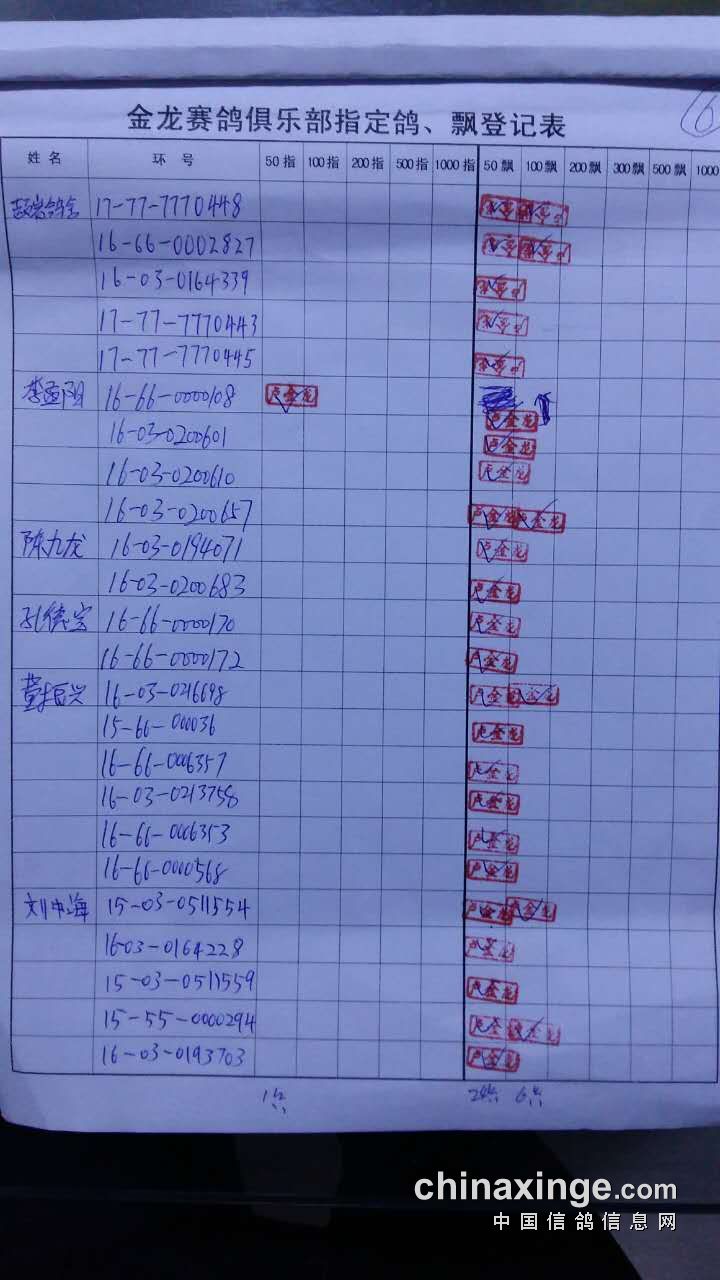 6
金龙赛鸽俱乐部指定鸽、飘登记表
姓名 环号 50指 100指 200指 500指 1000指 50飘 100飘 200飘 300飘 500飘 1000
17-77-7770448
16-66-0002827
16-03-0164339
17-77-7770443
17-77-7770445
16-66-0000108 卢金龙
16-03-0200601 卢金龙
16-03-0200610 卢金龙
16-03-0200657 卢金龙 卢金龙
陈九龙 16-03-0194071 卢金龙
16-03-0200683 卢金龙
孔德宝 16-66-0000170 卢金龙
16-66-0000172 卢金龙
董振兴 16-03-0216698 卢金龙 卢金龙
15-66-000036 卢金龙
16-66-0006357 卢金龙
16-03-0213758 卢金龙
16-66-0006353 卢金龙
16-66-0000568 卢金龙
刘中海 15-03-0511554 卢金龙 卢金龙
16-03-0164228 卢金龙
15-03-0511559 卢金龙
15-55-0000294 卢金龙 卢金龙
16-03-0193703 卢金龙
chinaxinge.com
中国信鸽信息网